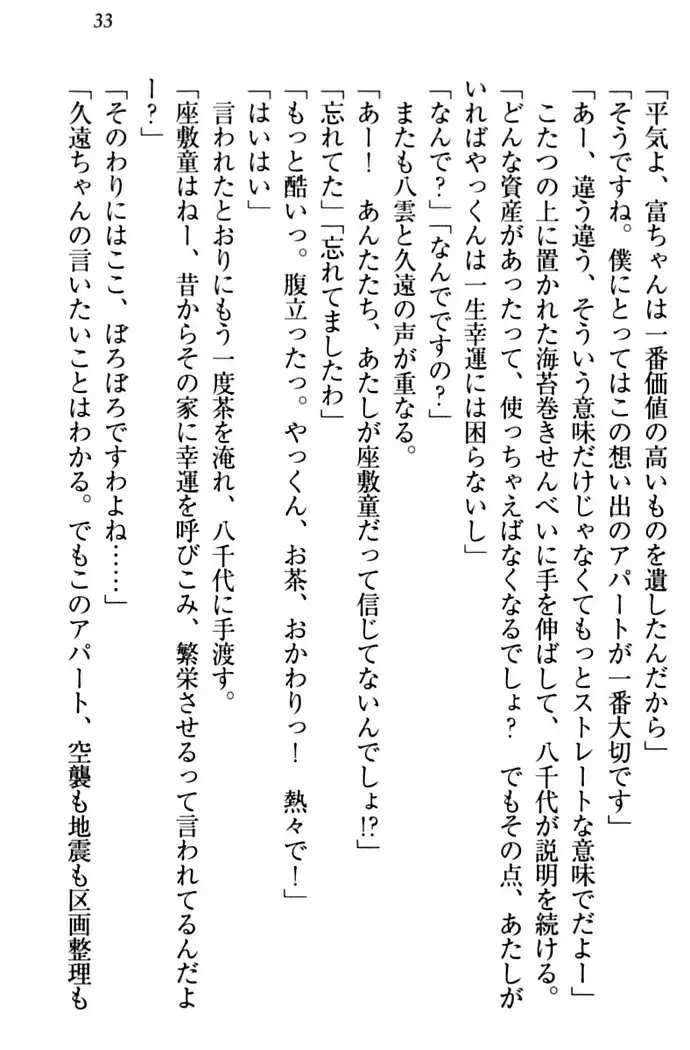 33
「平気よ、富ちゃんは一番価値の高いものを遺したんだから」
「そうですね。僕にとってはこの想い出のアパートが一番大切です」
「あー、違う違う、そういう意味だけじゃなくてもっとストレートな意味でだよー」
こたつの上に置かれた海苔巻きせんべいに手を伸ばして、八千代が説明を続ける。
「どんな資産があったって、使っちゃえばなくなるでしょ？　でもその点、あたしが
いればやっくんは一生幸運には困らないし」
「なんで？」「なんでですの？」
またも八雲と久遠の声が重なる。
「あー！　あんたたち、あたしが座敷童だって信じてないんでしょ!?」
「忘れてた」「忘れてましたわ」
「もっと酷いっ。腹立ったっ。やっくん、お茶、おかわりっ！　熱々で！」
「はいはい」
言われたとおりにもう一度茶を淹れ、八千代に手渡す。
「座敷童はねー、昔からその家に幸運を呼びこみ、繁栄させるって言われてるんだよ
ー？」
「そのわりにはここ、ぼろぼろですわよね……」
「久遠ちゃんの言いたいことはわかる。でもこのアパート、空襲も地震も区画整理も